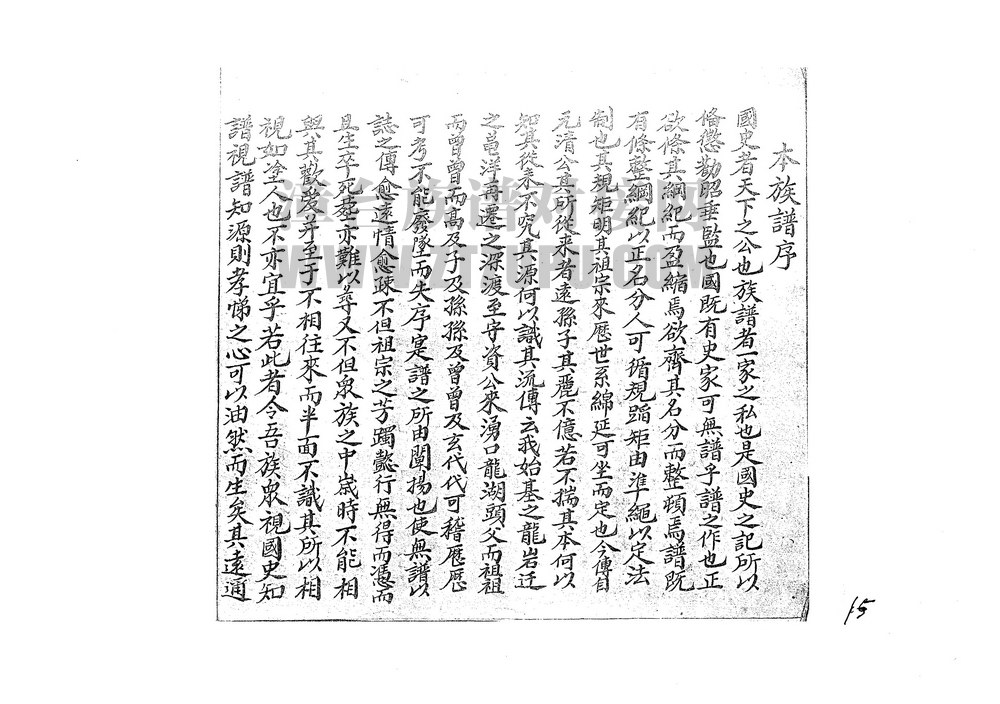 本族譜序
國史者天下之公也族譜者一家之私也是國史之記所以
俻懲勸昭垂監也國既有史家可無譜乎譜之作也正
欲條其綱紀而盈縮焉欲齊其名分而整頓焉譜既
有條整綱紀以正名分人可循規蹈矩由準繩以定法
制也其規矩明其祖宗來歷世系綿延可坐而定也今傳自
元清公其所從来者遠孫子其麗不億若不揣其本何以
知其從来不究其源何以識其流傳云我始基之龍岩迁
之莒洋再遷之深渡至守資公來湧口龍湖頭父而祖祖
而曾曾而高及子及孫孫及曾曾及玄代代可稽歷歷
可考不能廢墜而失序寔譜之所由闡揚也使無譜以
誌之傳愈遠情愈疎不但祖宗之芳躅懿行無得而憑而
且生卒死塟亦難以尋又不但衆族之中歲時不能相
與其歡愛并至于不相往來而半面不識其所以相
視如塗人也不亦宜乎若此者令吾族衆視國史知
譜視譜知源則孝悌之心可以油然而生矣其遠通
漳台族谱对接网
WWW.ZTZUPU.COM
15